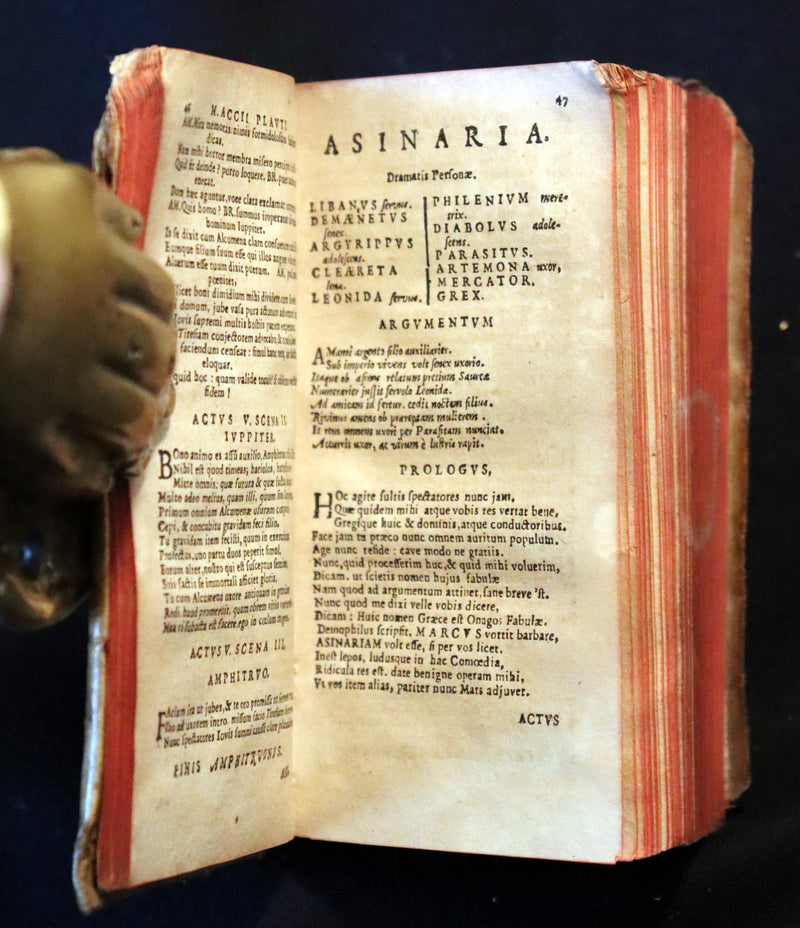 46 M. ACCII PLAVTI
AM. Mira memoras. nimis formidolosum
dicas.
Nam mihi horror membra misero percipit
Quid fit deinde? porro loquere. BR. puer
enecat.
Dum hæc aguntur, voce clara exclamat uxorem
AM. Quis homo? BR. summus imperator
hominum Iuppiter,
Is se dixit cum Alcumena clam consuetum
Eumque filium suum esse qui illos angues
Alterum esse tuum dixit puerum. AM.
pœnitet,
licet boni dimidium mihi dividere cum Iove
domum, jube vasa pura actutum adornari
Iovis supremi multis hostiis pacem
Tiresiam conjectorem advocabo, &
faciendum censeat: simul hanc rem
eloquar.
quid hoc: quam valide tonuit
fidem!
ACTVS V. SCENA II.
IVPPITER.
BOno animo es adsũ auxilio, Amphitruo
Nihil est quod timeas; hariolos,
Mitte omnis: quæ futura & quæ facta
Multo adeo melius, quam illi, quum
Primum omnium Alcumenæ usuram
Cepi, & concubitu gravidam feci filio.
Tu gravidam item fecisti, quum in exercitum
Profectus, uno partu duos peperit simul.
Eorum alter, nostro qui est susceptus semine,
Suis factis se immortali afficiet gloria,
Tu cum Alcumena uxore antiquam in gratiam
Redi. haud promeruit, quam obrem vitio
Mea vi subacta est facere. ego in cœlum migro.
ACTVS V. SCENA III.
AMPHITRVO.
FAciam ita ut jubes, & te oro promissa ut
Ibo ad uxorem intro. missum facio Tiresiam
Nunc spectatores Iovis summi causa clare plaudite
FINIS AMPHITRVONIS.
47
ASINARIA.
Dramatis Personæ.
LIBANVS servus.
DEMÆNETVS
senex.
ARGYRIPPVS
adolescens.
CLEÆRETA
lena.
LEONIDA servus.
PHILENIVM mere-
trix.
DIABOLVS adole-
scens.
PARASITVS.
ARTEMONA uxor,
MERCATOR.
GREX.
ARGVMENTVM
AManti argento filio auxiliarier.
Sub imperio vivens volt senex uxorio.
Itaque ob asinos relatum pretium Saureæ
Numerarier jussit servolo Leonidæ.
Ad amicam id fertur. cedit noctem filius.
Rivinus amens ob præreptam mulierem.
Is rem omnem uxori per Parasitum nunciat.
Accurrit uxor, ac virum è lustris rapit.
PROLOGVS,
HOc agite sultis spectatores nunc jam,
Quæ quidem mihi atque vobis res vertat bene,
Gregique huic & dominis, atque conductoribus.
Face jam tu præco nunc omnem auritum populum.
Age nunc reside: cave modo ne gratiis.
Nunc, quid processerim huc, & quid mihi voluerim,
Dicam. ut scietis nomen hujus fabulæ
Nam quod ad argumentum attinet, sane breve 'st.
Nunc quod me dixi velle vobis dicere,
Dicam: Huic nomen Græce est Onagos Fabulæ.
Demophilus scripsit, MARCVS vortit barbare,
ASINARIAM volt esse, si per vos licet.
Inest lepos, ludusque in hac Comœdia,
Ridicula res est. date benigne operam mihi,
Vt vos item alias, pariter nunc Mars adjuvet.
ACTVS